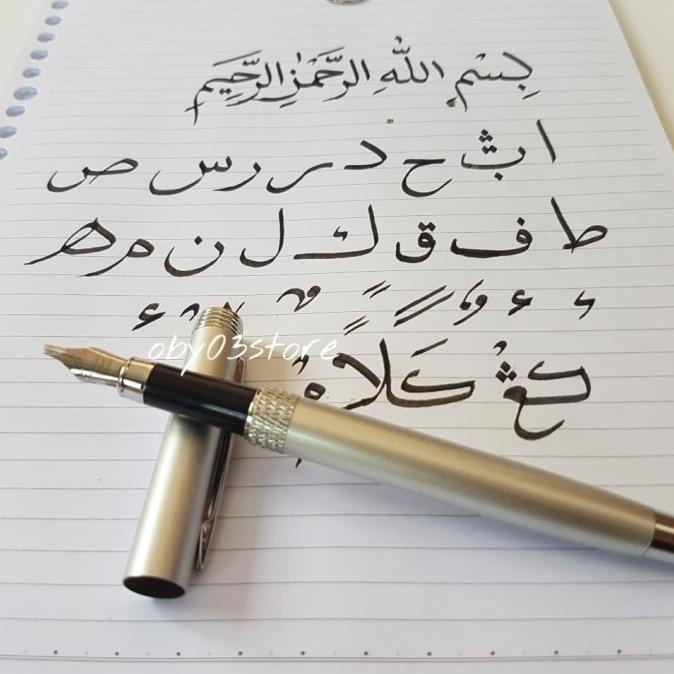 بِسْمِ اللّٰهِ الرَّحْمٰنِ الرَّحِيمِ
ا ث ح د ر ر س ص
ط ف ق ك ل ن م ه
ء ء
كَلَامْ
oby03store